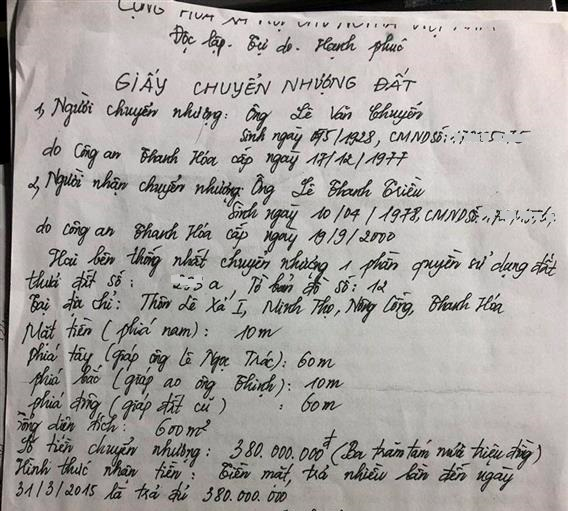 CỘNG HÒA XÃ HỘI CHỦ NGHĨA VIỆT NAM
Độc lập - Tự do - Hạnh phúc
GIẤY CHUYỂN NHƯỢNG ĐẤT
1, Người chuyển nhượng: Ông Lê Văn Chuyến
Sinh ngày 05/1928, CMND số:
do Công an Thanh Hóa cấp ngày 17/12/1977
2, Người nhận chuyển nhượng: Ông Lê Thanh Triều
Sinh ngày 10/04/1978, CMND số:
do công an Thanh Hóa cấp ngày 19/9/2000
Hai bên thống nhất chuyển nhượng 1 phần quyền sử dụng đất
thửa đất số: a, Tờ bản đồ số: 12
Tại địa chỉ: Thôn Lê Xá I, Minh Thọ, Nông Cống, Thanh Hóa
Mặt tiền (phía nam): 10m
phía tây (giáp ông Lê Ngọc Trác): 60m
phía bắc (giáp ao ông Thịnh): 10m
phía đông (giáp đất cũ) : 60m
Tổng diện tích: 600m²
Số tiền chuyển nhượng: 380.000.000đ (Ba trăm tám mươi triệu đồng)
Hình thức nhận tiền: Tiền mặt, trả nhiều lần đến ngày
31/3/2015 là trả đủ 380.000.000